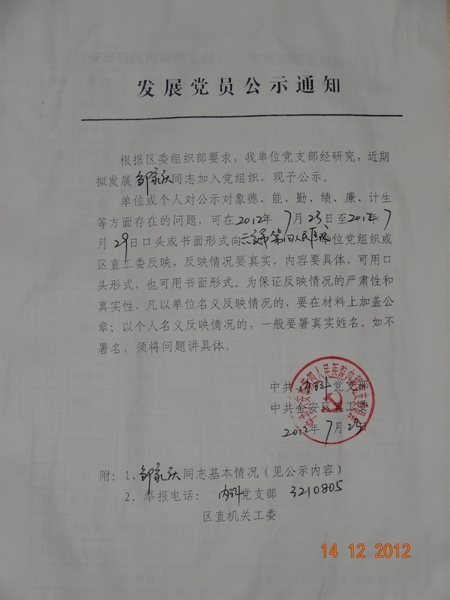 发展党员公示通知
根据区委组织部要求，我单位党支部经研究，近期
拟发展 同志加入党组织，现予公示。
单位或个人对公示对象德、能、勤、绩、廉、计生
等方面存在的问题，可在2012年7月23日至2012年7
月29日口头或书面形式向六安市第四人民医院位党组织或
区直工委反映，反映情况要真实，内容要具体，可用口
头形式，也可用书面形式。为保证反映情况的严肃性和
真实性，凡以单位名义反映情况的，要在材料上加盖公
章；以个人名义反映情况的，一般要署真实姓名。如不
署名，须将问题讲具体。
中共内科党支
中共金安区 工
2012年7月23日
附：1、 同志基本情况（见公示内容）
2、举报电话：内科党支部 3210805
区直机关工委
14 12 2012